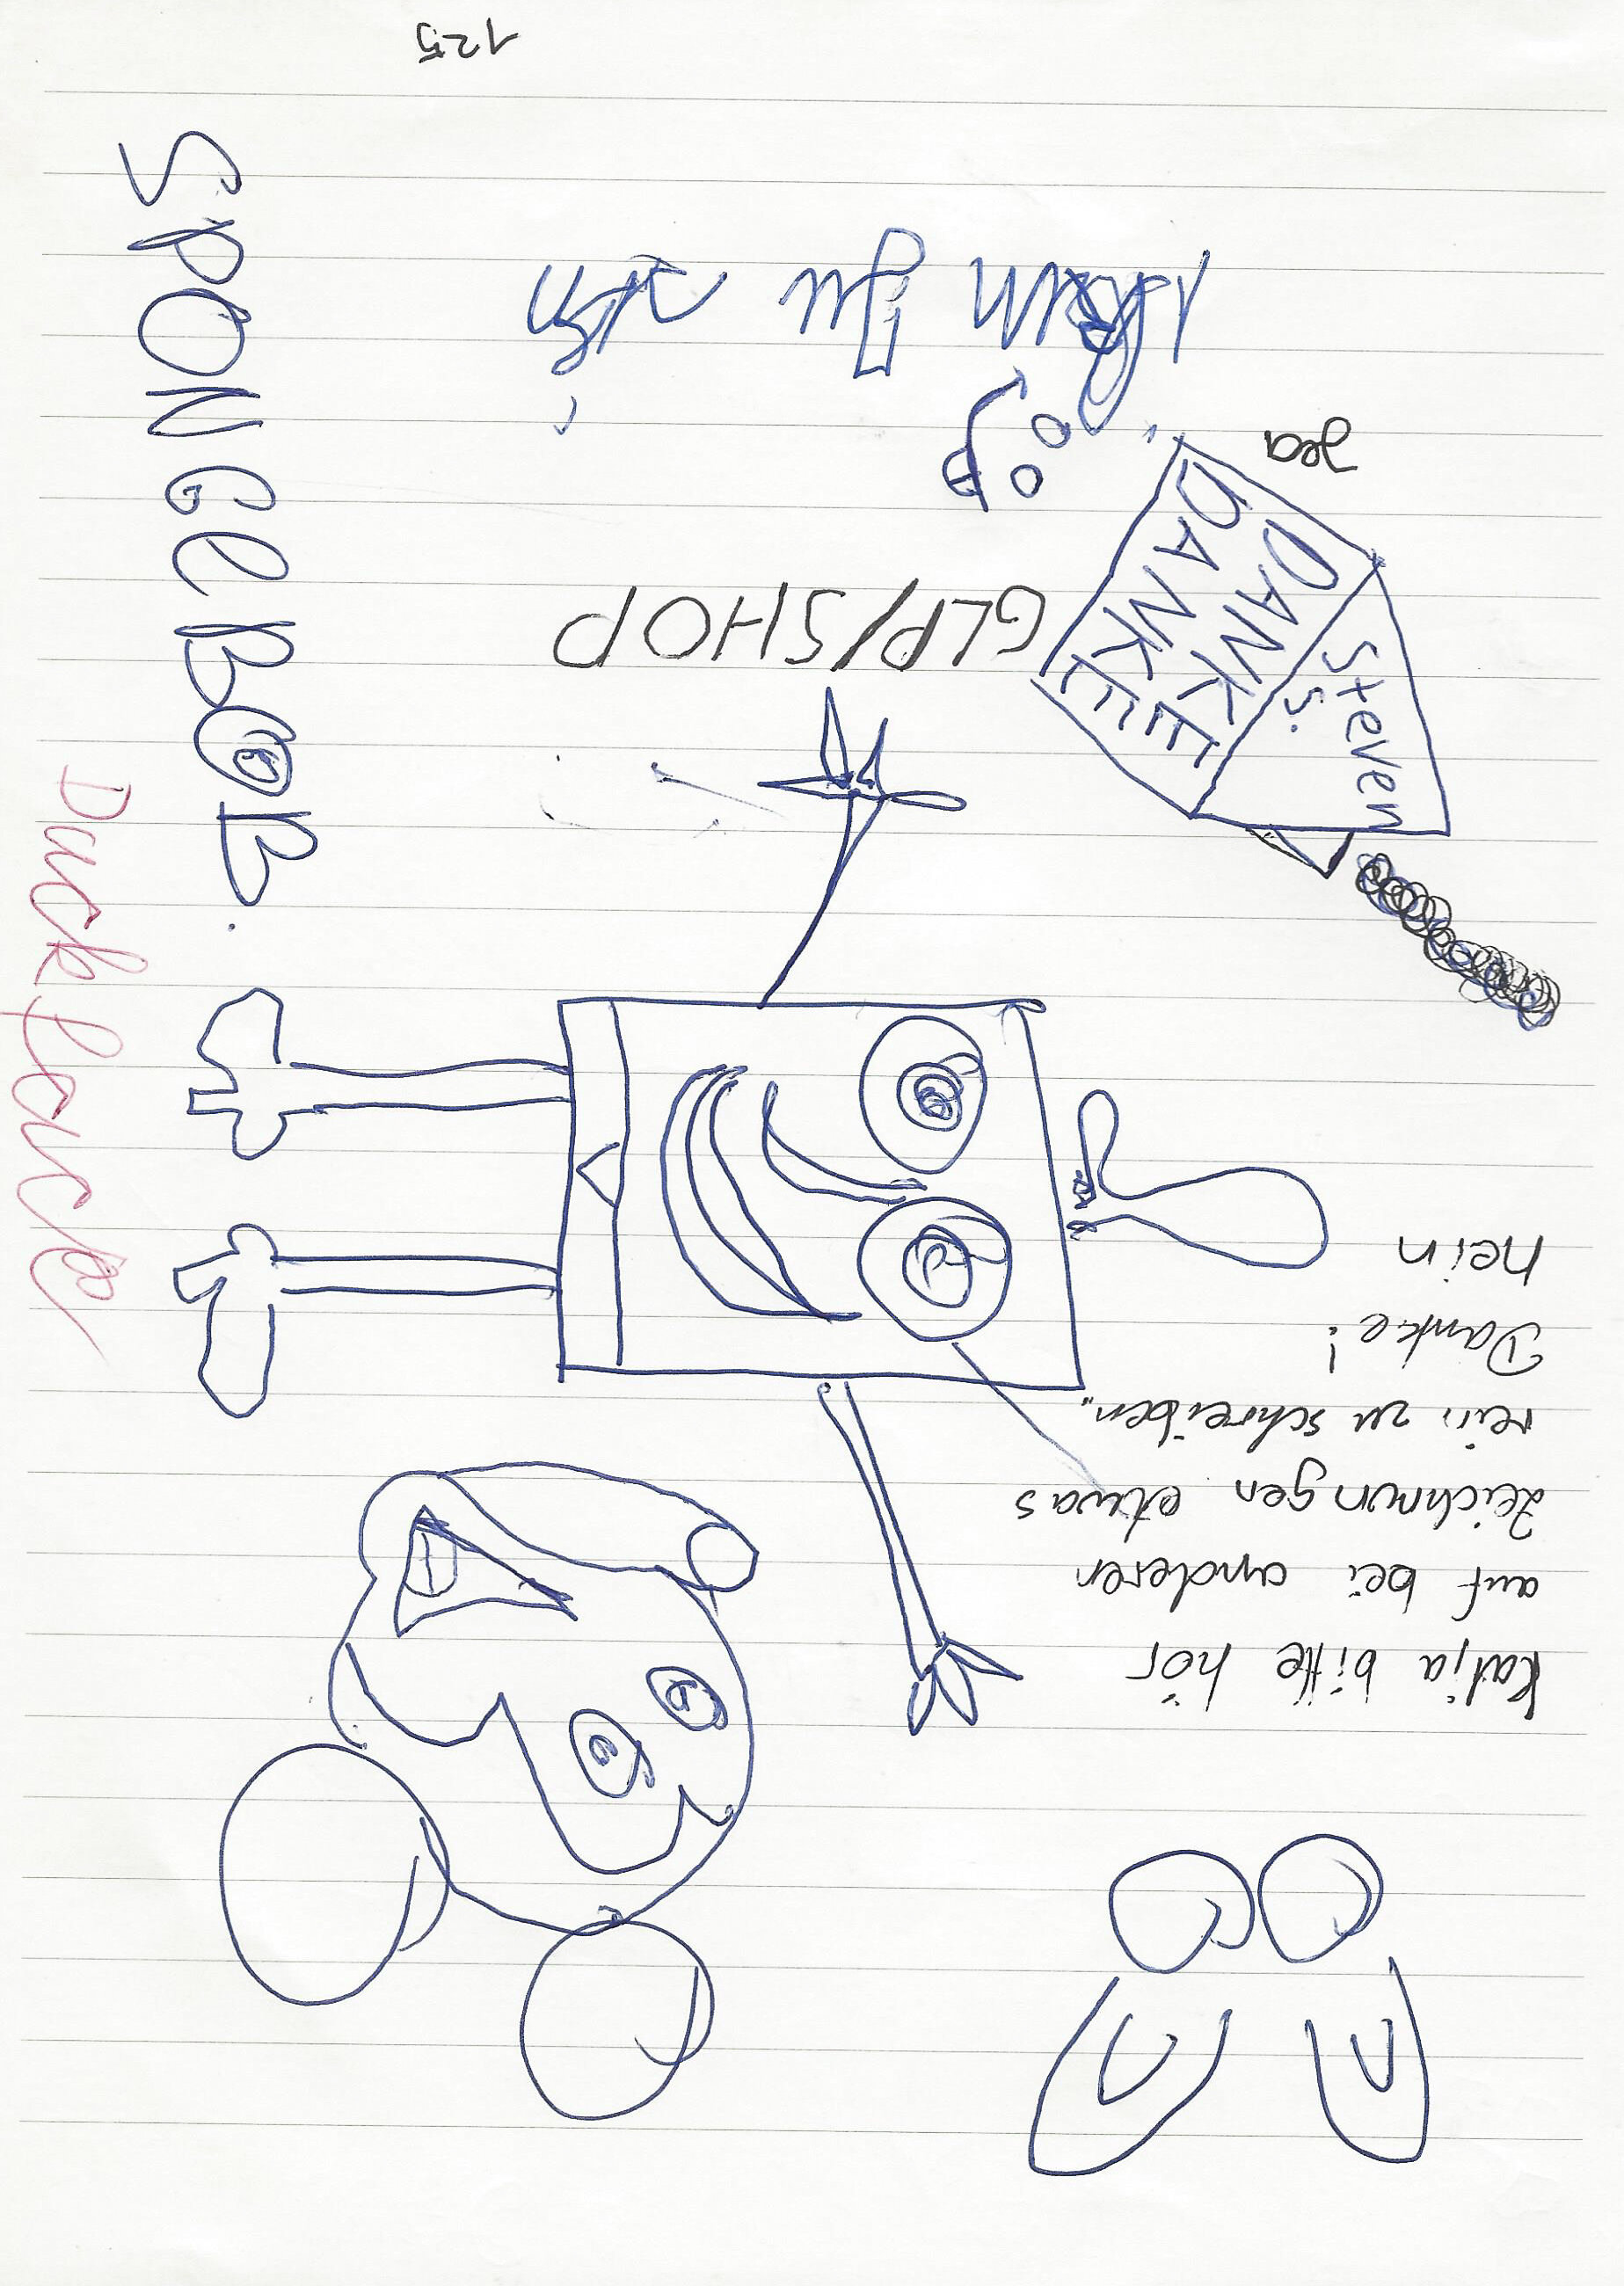 Katja bitte hör
auf bei anderen
zeichnungen etwas
rein zu schreiben"
Danke!
nein
GLP/SHOP
Steven
S.
DANKE
DANKE
yea
SPONGEBOB.
Duckface
125